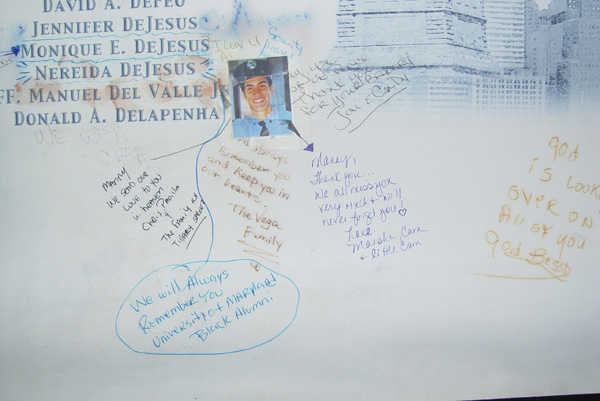 DAVID A. DEFEO
JENNIFER DEJESUS
MONIQUE E. DEJESUS
NEREIDA DEJESUS
FF. MANUEL DEL VALLE JR
DONALD A. DELAPENHA
I LUV U
Thank you
For your Bravery
Jon & Cindy
WE WERE
Manny
WE send our
Love to you
in heaven
Chris, Emilio
&
The Family
always
Remember you
and Keep you in
our hearts
The Vega
Family
Manny,
Thank you...
We all miss you
very much & will
never forget you!
Love
Cam
& little Cam
god
is Look
over on
All of you
god Bless
We will Always
Remember You
University of Maryland
Black Alumni!